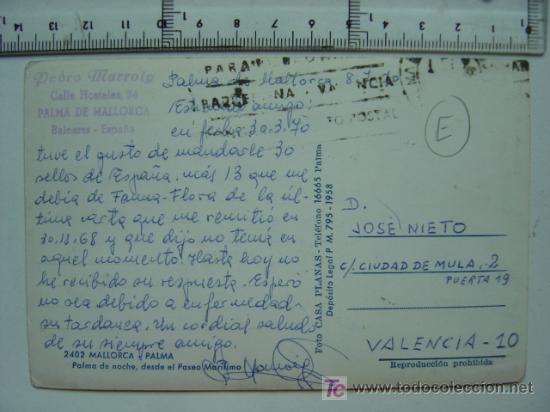 Pedro Marroig
Calle Hostales, 94
PALMA DE MALLORCA
Baleares - España
Palma de Mallorca 8.7.70
Estimado amigo:
en fecha 30.3.70
tuve el gusto de mandarle 30
sellos de España, más 13 que me
debía de Fauna-Flora de la úl-
tima carta que me remitió en
30.12.68 y que dijo no tenía en
aquel momento. Hasta hoy no
he recibido su respuesta. Espero
no sea debido a enfermedad
su tardanza. Un cordial saludo
de su siempre amigo.
2402 MALLORCA PALMA
Palma de noche, desde el Paseo Marítimo
PARA
BARCELONA VALENCIA
POSTAL
E
Foto CASA PLANAS - Teléfono 16665 Palma
Depósito Legal P M. 795 - 1958
D.
JOSÉ NIETO
C/. CIUDAD DE MULA, 2
PUERTA 19
VALENCIA - 10
Reproducción prohibida
todocoleccion